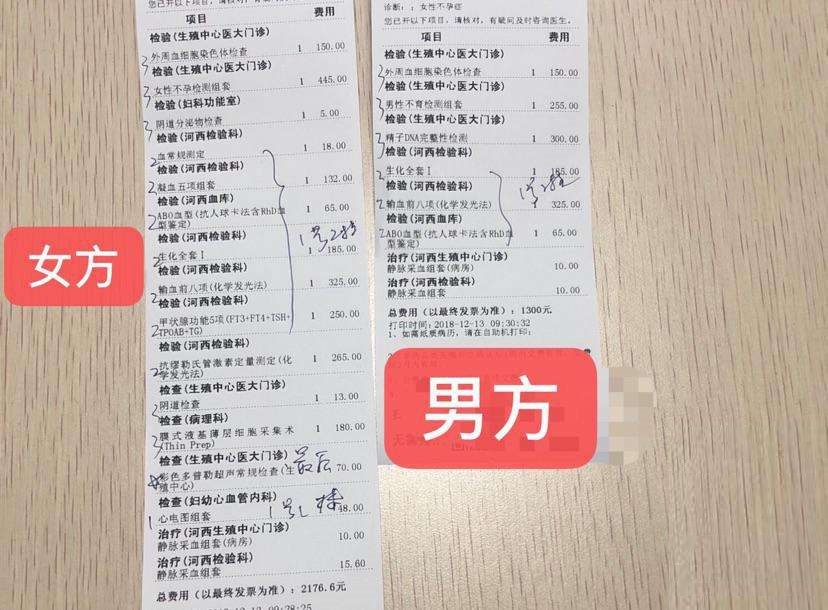 您已开以下项目,请核对,有疑问及时咨询医生。
项目 费用
检验(生殖中心医大门诊)
外周血细胞染色体检查 1 150.00
检验(生殖中心医大门诊)
女性不孕检测组套 1 445.00
检验(妇科功能室)
阴道分泌物检查 1 5.00
检验(河西检验科)
血常规测定 1 18.00
检验(河西检验科)
凝血五项组套 1 132.00
检验(河西血库)
ABO血型(抗人球卡法含RhD血 1 65.00
型鉴定)
检验(河西检验科)
生化全套Ⅰ 1 185.00
检验(河西检验科)
输血前八项(化学发光法) 1 325.00
检验(河西检验科)
甲状腺功能5项(FT3+FT4+TSH+ 1 250.00
TPOAB+TG)
检验(河西检验科)
抗缪勒氏管激素定量测定(化 1 265.00
学发光法)
检查(生殖中心医大门诊)
阴道检查 1 13.00
检查(病理科)
膜式液基薄层细胞采集术 1 180.00
(Thin Prep)
检查(生殖中心医大门诊) 最后
彩色多普勒超声常规检查(生 70.00
殖中心)
检查(妇幼心血管内科)
心电图组套 48.00
治疗(河西生殖中心门诊)
静脉采血组套(病房) 10.00
治疗(河西检验科)
静脉采血组套 15.60
总费用(以最终发票为准):2176.6元
女方
诊断::女性不孕症
您已开以下项目,请核对,有疑问及时咨询医生。
项目 费用
检验(生殖中心医大门诊)
外周血细胞染色体检查 1 150.00
检验(生殖中心医大门诊)
男性不育检测组套 1 255.00
检验(生殖中心医大门诊)
精子DNA完整性检测 1 300.00
检验(河西检验科)
生化全套Ⅰ 1 185.00
检验(河西检验科)
输血前八项(化学发光法) 1 325.00
检验(河西血库)
ABO血型(抗人球卡法含RhD血 1 65.00
型鉴定)
治疗(河西生殖中心门诊)
静脉采血组套(病房) 10.00
治疗(河西检验科)
静脉采血组套 10.00
总费用(以最终发票为准):1300元
打印时间:2018-12-13 09:30:32
1、如需纸质病历,请在自助机打印;
男方